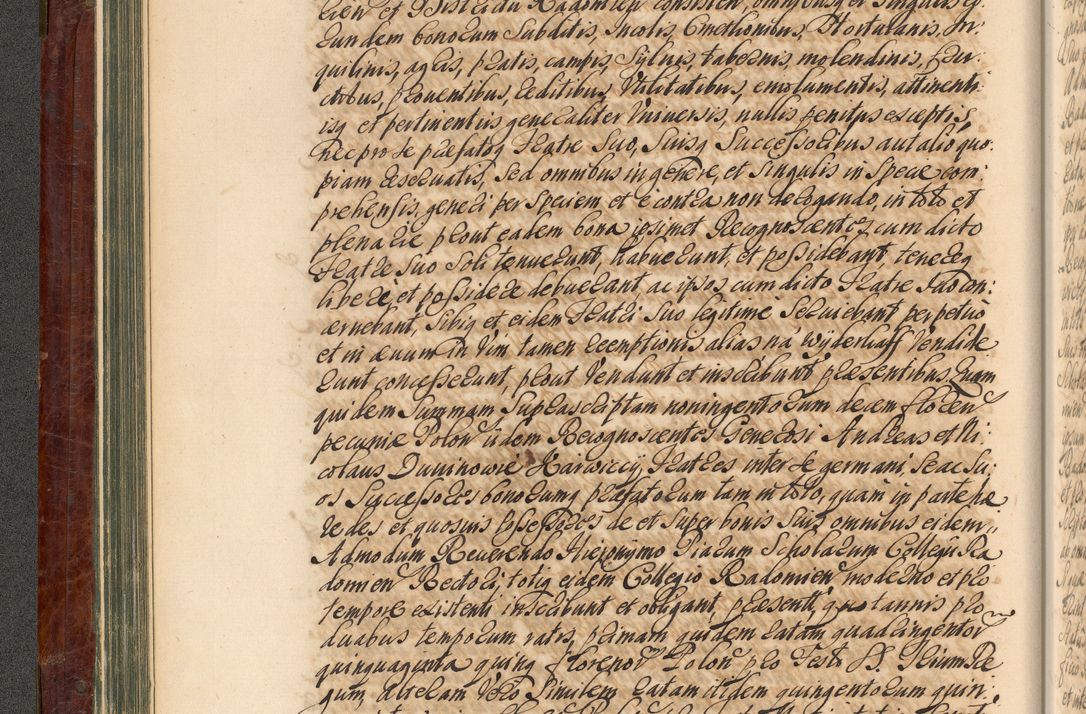 eundem bonorum Subditis, Incolis, Cmethonibus, Hortulanis, In,,
quilinis, agris, pratis, campis, Sylvis, tabernis, molendinis, fru,,
ctibus, proventibus, reditibus, Utilitatibus, emolumentis, attinenti,,
isq et pertinentiis generaliter Universis, nullis penitus exceptis,
nec pro se præfatoq Fratre Suo, Suisq Successoribus aut alio quo,,
piam reservatis, Sed omnibus in genere, et Singulis in Specie com,,
prehensis, generi per Speciem et e contra non derogando, in toto et
plenarie prout eadem bona ipsimet Recognoscentes cum dicto
Fratre Suo Soli tenuerunt, habuerunt, et possidebant, tenereq
libere, et possidere debuerunt ac ipsos cum dicto Fratre Suo con,,
cernebant, Sibiq et eidem Fratri Suo legitime Serviebant perpetuo
et in ævum in Vim tamen reemptionis alias na wyderkaff Vendide
runt concesserunt, prout Vendunt et inscribunt præsentibus Quam
quidem Summam Suprascriptam noningentorum decem floren
pecuniæ Polon iidem Recognoscentes Generosi Andreas et Ni,,
colaus Duninowie Karwiccy Fratres inter Se germani, Se ac Su,,
os Successores bonorumq præfatorum tam in toto, quam in parte hæ
redes et quosvis possessores de et Super bonis Suis omnibus eidem
Admodum Reverendo Hieronymo Piarum Scholarum Collegii Ra
domien Rectori, totiq eidem Collegio Radomien moderno et pro
tempore existenti inscribunt et obligant præsentt, quotannis pro
duabus temporum ratis, primam quidem ratam quadringentor
quinquaginta quinq florenor Polon pro Festo SS. Trium Re
gum, alteram Vero Similem ratam itidem quingentorum quin,,